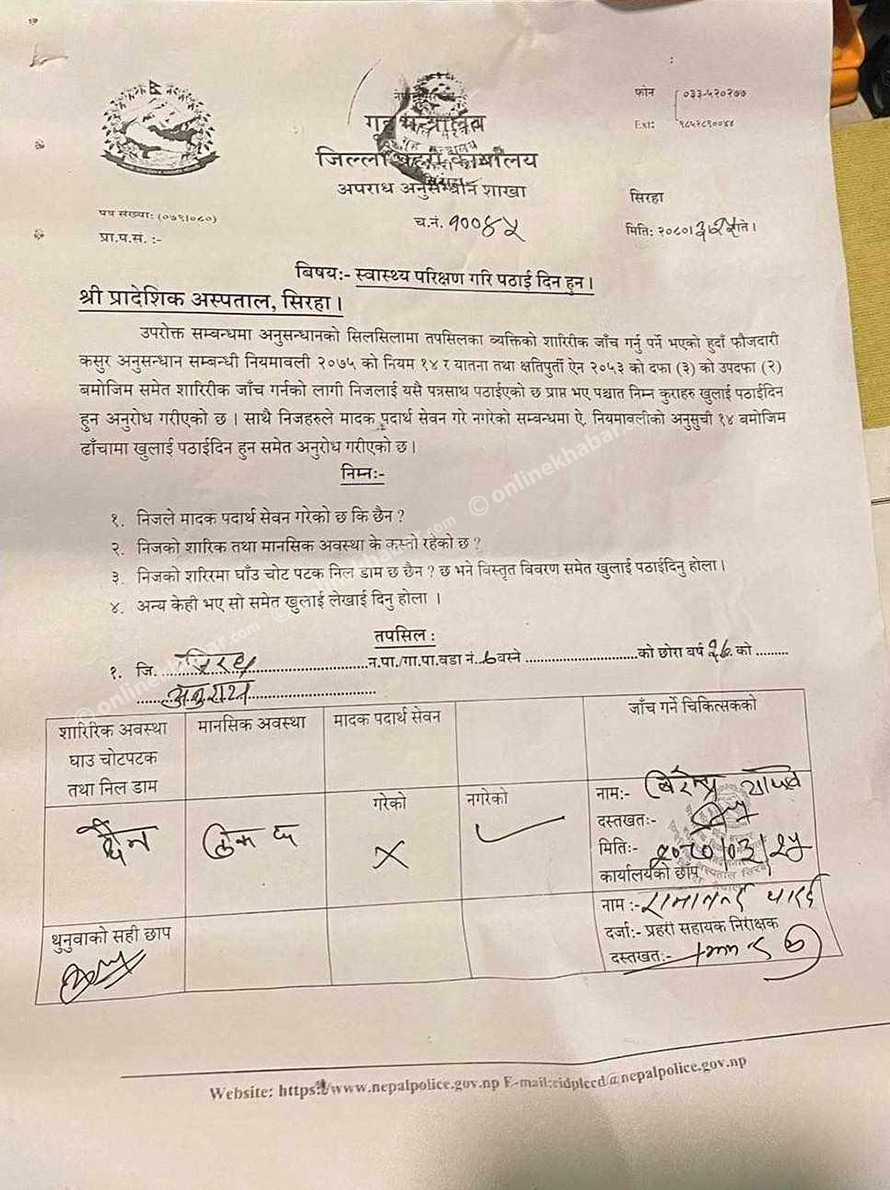 फोन ०३३-५२०२७७
Ext: ९८५२८९००४४
गृह मन्त्रालय
जिल्ला प्रहरी कार्यालय
अपराध अनुसन्धान शाखा
सिरहा
पत्र संख्या: (०७९।०८०)
च.नं. १००४५
मिति: २०८०।३।२५ गते।
प्रा.प.सं. :-
बिषय:- स्वास्थ्य परिक्षण गरि पठाई दिन हुन।
श्री प्रादेशिक अस्पताल, सिरहा।
उपरोक्त सम्बन्धमा अनुसन्धानको सिलसिलामा तपसिलका व्यक्तिको शारिरीक जाँच गर्नु पर्ने भएको हुदाँ फौजदारी
कसुर अनुसन्धान सम्बन्धी नियमावली २०७५ को नियम १४ र यातना तथा क्षतिपुर्ती ऐन २०५३ को दफा (३) को उपदफा (२)
बमोजिम समेत शारिरीक जाँच गर्नको लागी निजलाई यसै पत्रसाथ पठाईएको छ प्राप्त भए पश्चात निम्न कुराहरु खुलाई पठाईदिन
हुन अनुरोध गरीएको छ। साथै निजहरुले मादक पदार्थ सेवन गरे नगरेको सम्बन्धमा ऐ. नियमावलीको अनुसुची १४ बमोजिम
ढाँचामा खुलाई पठाईदिन हुन समेत अनुरोध गरीएको छ।
निम्न:-
१. निजले मादक पदार्थ सेवन गरेको छ कि छैन ?
© onlinekhabar.com
२. निजको शारिक तथा मानसिक अवस्था के कस्तो रहेको छ ?
३. निजको शरिरमा घाँउ चोट पटक निल डाम छ छैन ? छ भने विस्तृत विवरण समेत खुलाई पठाईदिनु होला।
४. अन्य केही भए सो समेत खुलाई लेखाई दिनु होला ।
तपसिल :
१. जि. सिरहा न.पा./गा.पा.वडा नं. ६ वस्ने को छोरा वर्ष २६ को
© onlinekhabar.com
शारिरिक अवस्था घाउ चोटपटक तथा निल डाम
मानसिक अवस्था
मादक पदार्थ सेवन
जाँच गर्ने चिकित्सकको
गरेको
नगरेको
नाम:- बिरेन्द्र यादव
छैन
ठिक छ
दस्तखत:-
मिति:- २०८०/०३/२५
कार्यालयको छाप
थुनुवाको सही छाप
नाम :- रामानन्द यादव
दर्जा:- प्रहरी सहायक निरीक्षक
दस्तखत:-
Website: https://www.nepalpolice.gov.np E-mail:cidplccd@nepalpolice.gov.np